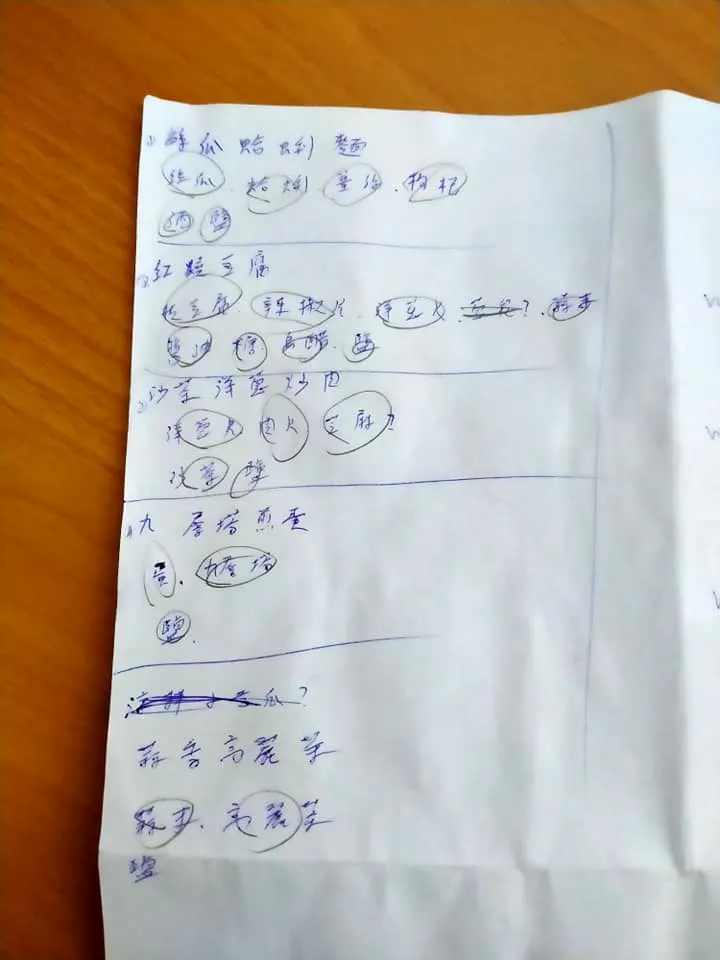 ① 絲瓜蛤蜊麵
絲瓜.蛤蜊.薑絲.枸杞
酒 鹽
② 紅燒豆腐
板豆腐.辣椒片.洋蔥片 ?.蒜末
醬油 糖.烏醋.鹽
③ 沙茶洋蔥炒肉
洋蔥片 肉片 芝麻?
沙茶 鹽
4. 九層塔煎蛋
蛋.九層塔
鹽.
涼拌小黃瓜?
蒜香高麗菜
蒜末.高麗菜
鹽